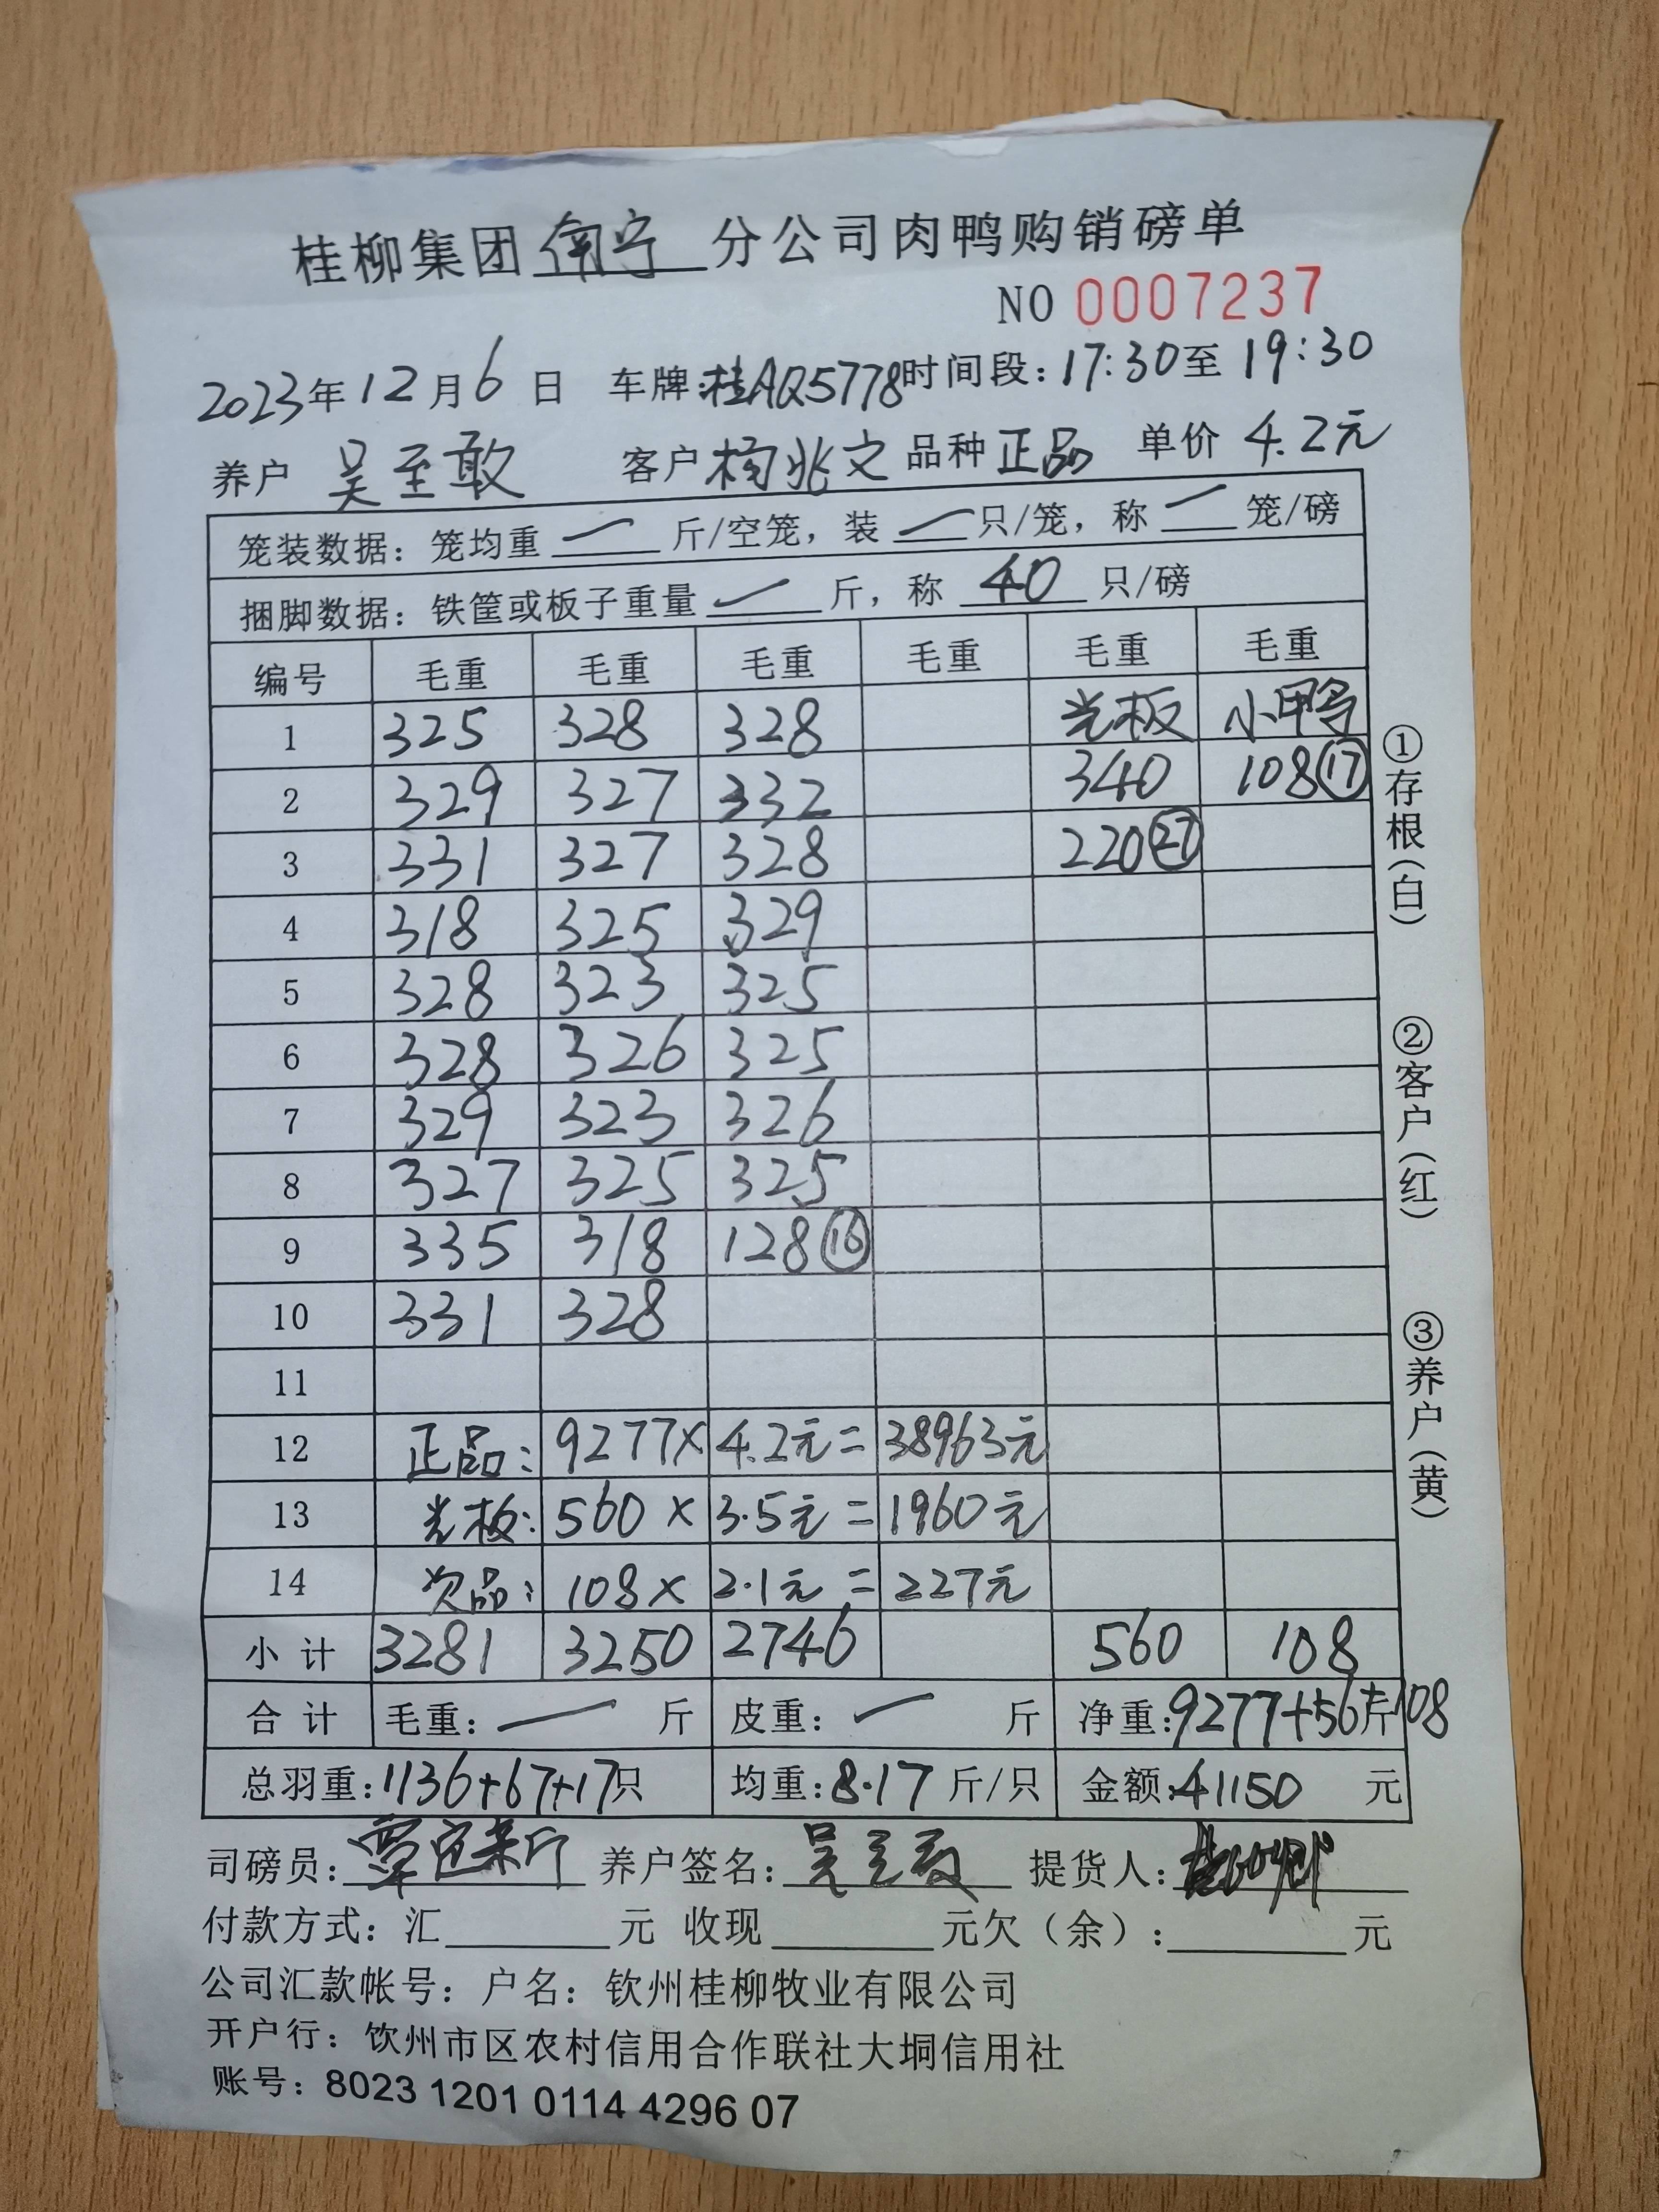 桂柳集团南宁分公司肉鸭购销磅单
NO 0007237
2023年12月6日 车牌:桂AQ5778 时间段:17:30至19:30
养户 吴至敢 客户 杨兆文 品种 正品 单价 4.2元
笼装数据: 笼均重 一 斤/空笼, 装 一 只/笼, 称 一 笼/磅
捆脚数据: 铁筐或板子重量 一 斤, 称 40 只/磅
编号 毛重 毛重 毛重 毛重 毛重 毛重
1 325 328 328 光板 小鸭
2 329 327 332 340 108⑰
3 331 327 328 220㉗
4 318 325 329
5 328 323 325
6 328 326 325
7 329 323 326
8 327 325 325
9 335 318 128⑯
10 331 328
11
12 正品: 9277× 4.2元= 38963元
13 光板: 560× 3.5元= 1960元
14 次品: 108× 2.1元= 227元
小计 3281 3250 2746 560 108
合计 毛重: 一 斤 皮重: 一 斤 净重:9277+56斤108
总羽重:1136+67+17只 均重:8.17斤/只 金额:41150 元
司磅员: 养户签名: 提货人:
付款方式: 汇 元 收现 元欠(余): 元
公司汇款帐号: 户名: 钦州桂柳牧业有限公司
开户行: 钦州市区农村信用合作联社大垌信用社
账号: 8023 1201 0114 4296 07
①存根(白)
②客户(红)
③养户(黄)